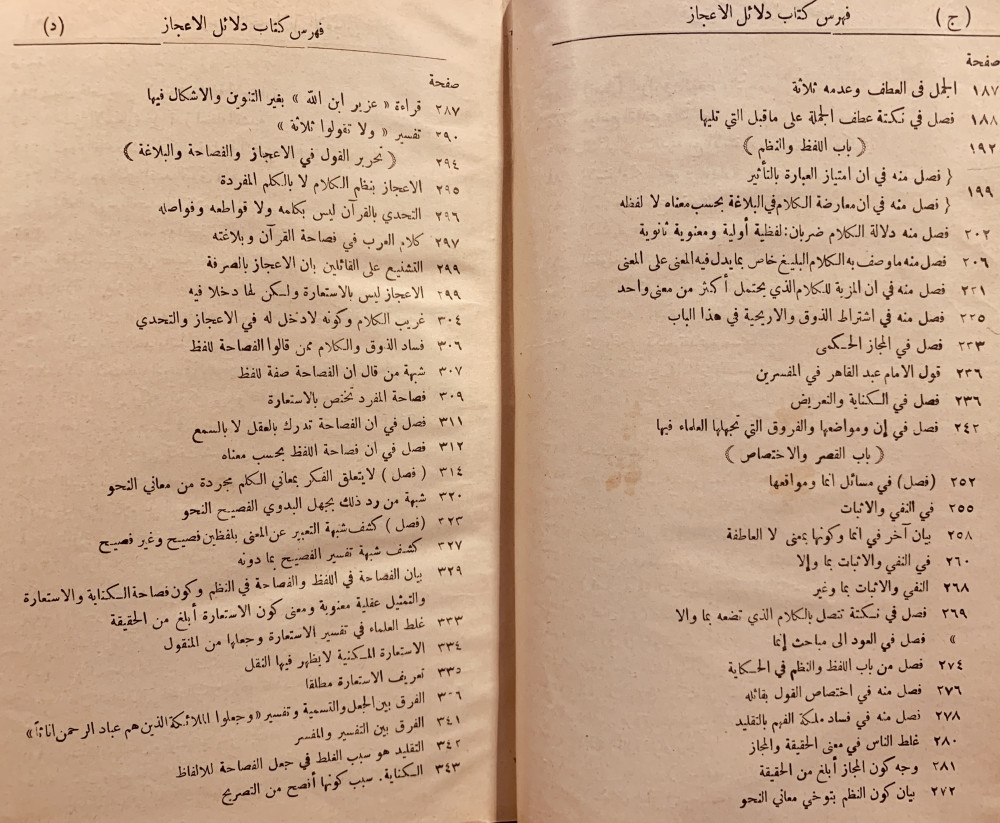 (ج) فهرس كتاب دلائل الاعجاز
صفحة
١٨٧ الجمل فى العطف وعدمه ثلاثة
١٨٨ فصل في نكتة عطف الجملة على ماقبل التي تليها
١٩٢ ﴿ باب اللفظ والنظم ﴾
١٩٩ { فصل منه في ان امتياز العبارة بالتأثير
{ فصل منه في ان معارضة الكلام في البلاغة بحسب معناه لا لفظه
٢٠٢ فصل منه دلالة الكلام ضربان: لفظية أولية ومعنوية ثانوية
٢٠٦ فصل منه ماوصف به الكلام البليغ خاص بما يدل فيه المعنى على المعنى
٢٢١ فصل منه في ان المزية للكلام الذي يحتمل أكثر من معنى واحد
٢٢٥ فصل منه في اشتراط الذوق والاريحية في هذا الباب
٢٣٣ فصل في المجاز الحكمى
٢٣٦ قول الامام عبد القاهر في المفسرين
٢٣٦ فصل في الكناية والتعريض
٢٤٢ فصل في إن ومواضعها والفروق التي تجهلها العلماء فيها
﴿ باب القصر والاختصاص ﴾
٢٥٢ (فصل) في مسائل انما ومواقعها
٢٥٥ في النفي والاثبات
٢٥٨ بيان آخر في انما وكونها بمعنى لا العاطفة
٢٦٠ في النفي والاثبات بما وإلا
٢٦٨ النفي والاثبات بما وغير
٢٦٩ فصل في نكتة تتصل بالكلام الذي تضعه بما والا
» فصل في العود الى مباحث إنما
٢٧٤ فصل من باب اللفظ والنظم في الحكاية
٢٧٦ فصل منه في اختصاص القول بقائله
٢٧٨ فصل منه في فساد ملكة الفهم بالتقليد
٢٨٠ غلط الناس في معنى الحقيقة والمجاز
٢٨١ وجه كون المجاز أبلغ من الحقيقة
٢٧٢ بيان كون النظم بتوخي معاني النحو
فهرس كتاب دلائل الاعجاز (د)
صفحة
٢٨٧ قراءة « عزير ابن الله » بغير التنوين والاشكال فيها
٢٩٠ تفسير « ولا تقولوا ثلاثة »
٢٩٤ ﴿ تحرير القول في الاعجاز والفصاحة والبلاغة ﴾
٢٩٥ الاعجاز بنظم الكلام لا بالكلم المفردة
٢٩٦ التحدي بالقرآن ليس بكلمه ولا قواطعه وفواصله
٢٩٧ كلام العرب في فصاحة القرآن وبلاغته
٢٩٩ التشنيع على القائلين بان الاعجاز بالصرفة
٢٩٩ الاعجاز ليس بالاستعارة ولكن لها دخلا فيه
٣٠٤ غريب الكلام وكونه لادخل له في الاعجاز والتحدي
٣٠٦ فساد الذوق والكلام ممن قالوا الفصاحة للفظ
٣٠٧ شبهة من قال ان الفصاحة صفة للفظ
٣٠٩ فصاحة المفرد تختص بالاستعارة
٣١١ فصل في ان الفصاحة تدرك بالعقل لا بالسمع
٣١٢ فصل في ان فصاحة اللفظ بحسب معناه
٣١٤ ( فصل ) لايتعلق الفكر بمعاني الكلم مجردة من معاني النحو
٣٢٠ شبهة من رد ذلك بجهل البدوي الفصيح النحو
٣٢٣ (فصل ) كشف شبهة التعبير عن المعنى بلفظين فصيح وغير فصيح
٣٢٧ كشف شبهة تفسير الفصيح بما دونه
٣٢٩ بيان الفصاحة في اللفظ والفصاحة في النظم وكون فصاحة الكناية والاستعارة
والتمثيل عقلية معنوية ومعنى كون الاستعارة أبلغ من الحقيقة
٣٣٣ غلط العلماء في تفسير الاستعارة وجعلها من المنقول
٣٣٤ الاستعارة المكنية لايظهر فيها النقل
٣٣٥ تعريف الاستعارة مطلقا
٣٣٦ الفرق بين الجعل والتسمية وتفسير «وجعلوا الملائكة الذين هم عباد الرحمن اناثاً»
٣٤١ الفرق بين التفسير والمفسر
٣٤٢ التقليد هو سبب الغلط في جعل الفصاحة للالفاظ
٣٤٣ الكناية. سبب كونها أفصح من التصريح